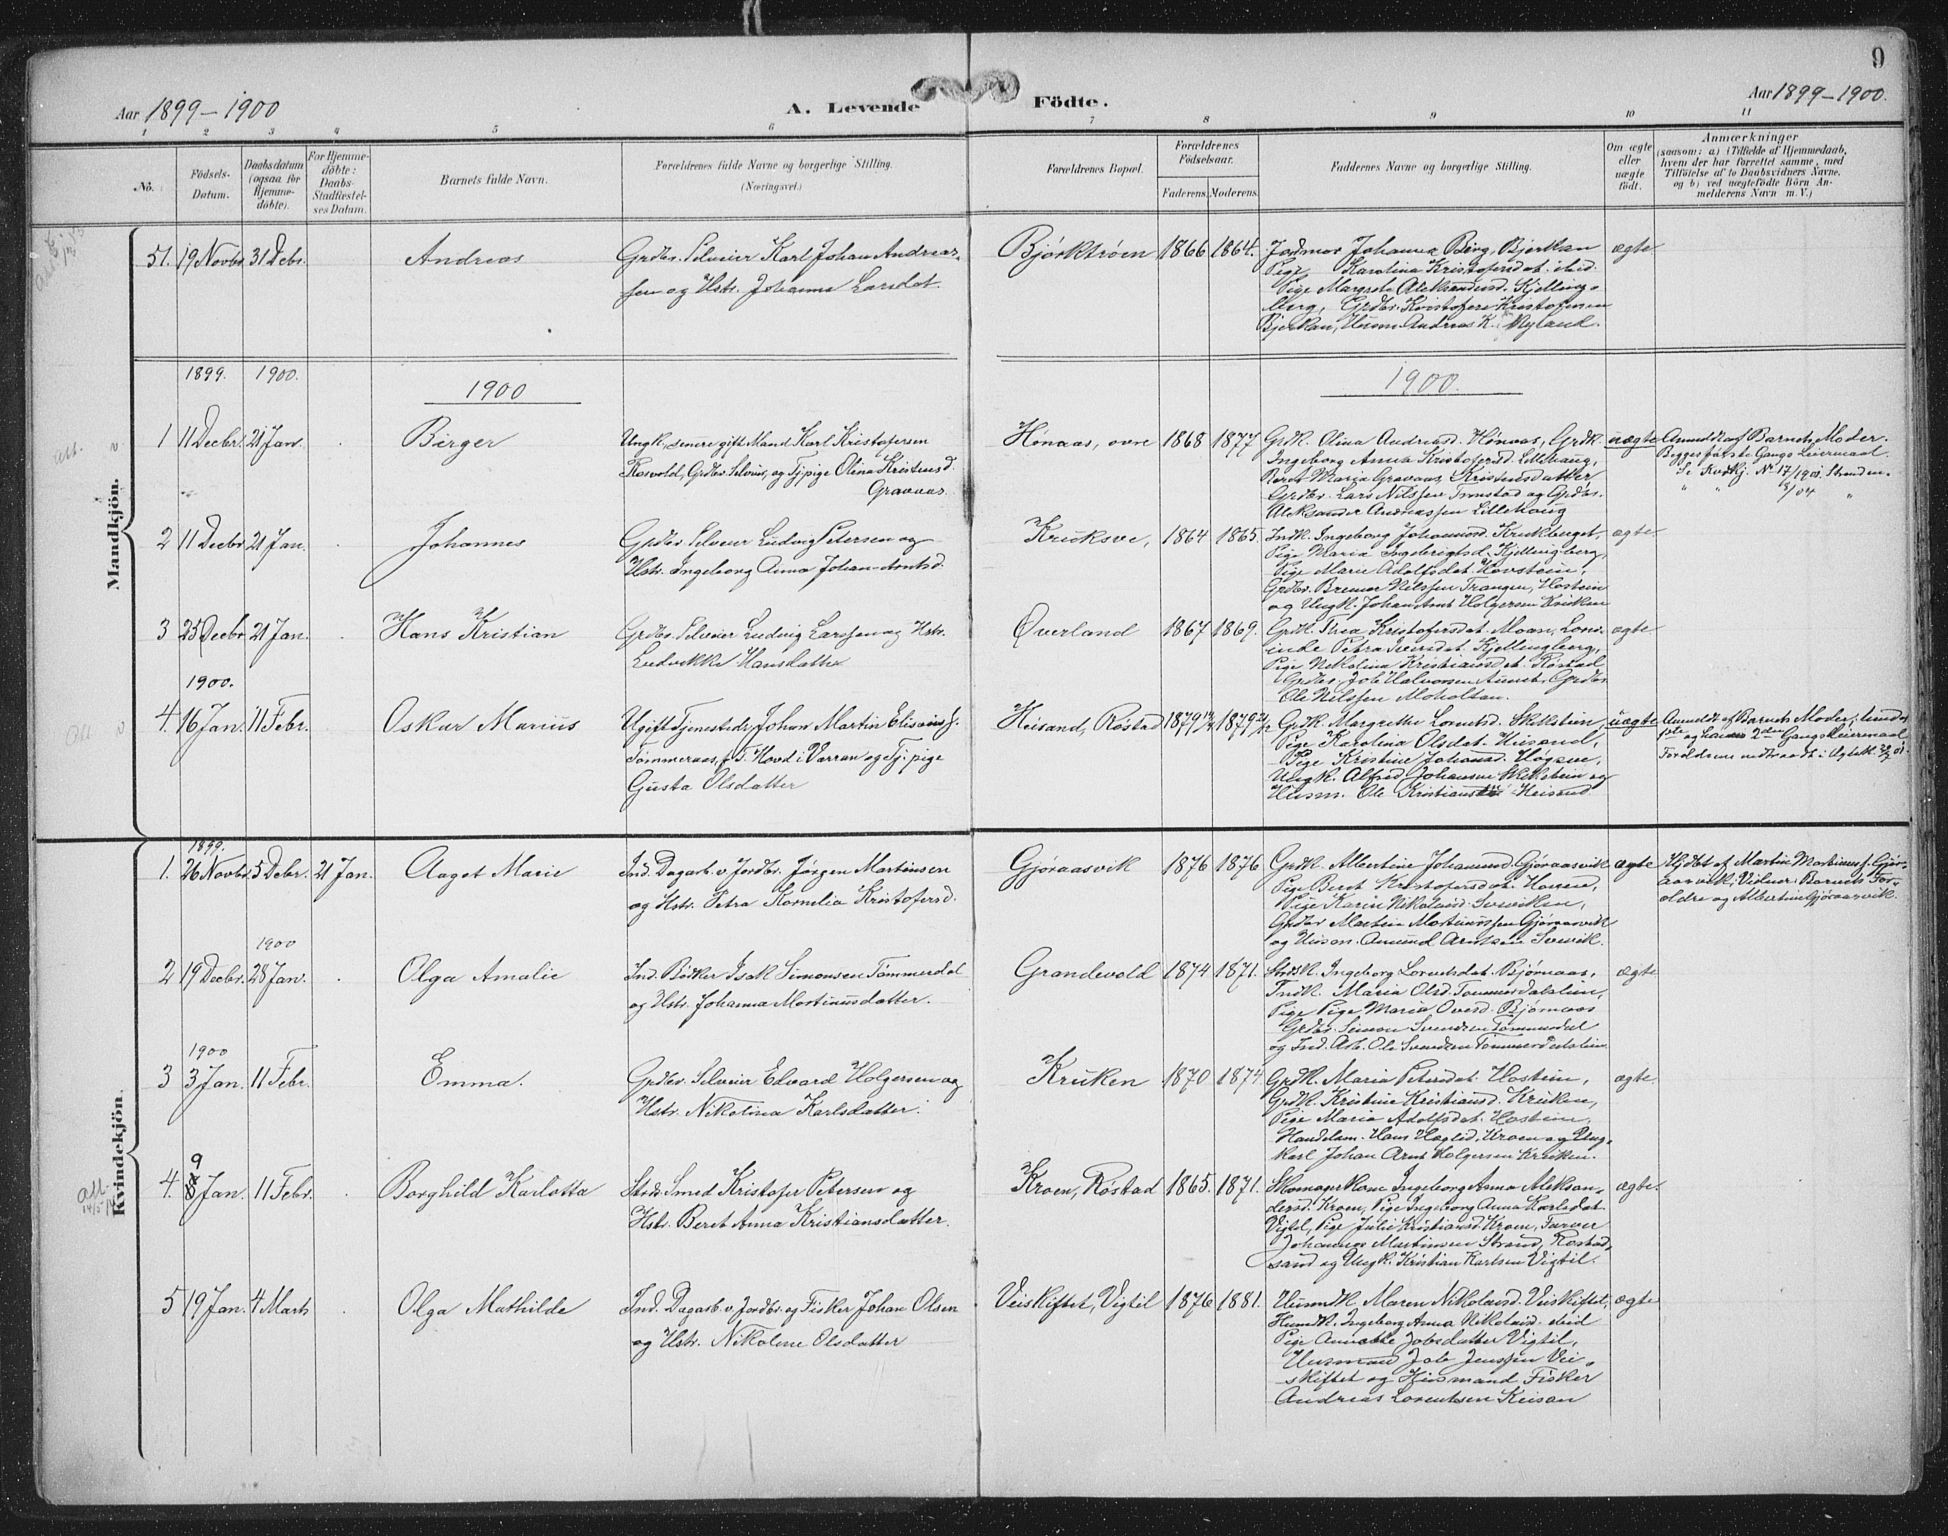 9
Aar 1899-1900
A. Levende Födte.
Aar 1899-1900.
1 2 3 4 5 6 7 8 9 10 11
No.
Födsels-Datum.
Daabsdatum (ogsaa for Hjemme-döbte).
For Hjemme-döbte: Daabs-Stadfæstel-ses Datum.
Barnets fulde Navn.
Forældrenes fulde Navne og borgerlige Stilling.
(Næringsvei.)
Forældrenes Bopæl.
Forældrenes Födselsaar.
Faderens. Moderens.
Faddernes Navne og borgerlige Stilling.
Om ægte eller uægte födt.
Anmærkninger
(saasom: a) i Tilfælde af Hjemmedaab, hvem der har forrettet samme, med Tilföielse af to Daabsvidners Navne, og b) ved uægtefödte Börn Anmelderens Navn m. V.)
Mandkjön.
51. 19 Novbr. 31 Debr. Andreas
Grdbr. Selveier Karl Johan Andreas-
sen og Hstr. Johanna Larsdat.
Bjørktrøen 1866 1864.
Jordmor Johanna Berg, Bjerkan
Pige Karolina Kristofersdat. ibid.
Pige Margrete Aleksandersd. Kjelling-
berg, Grdbr. Kristofer Kristofersen
Bjerkan, Husm. Andreas K. Myland.
ægte
1899. 1900.
1900
1900.
1 11 Decbr. 21 Jan. Birger
Ungk., senere gift Mand Karl Kristofersen
Rosvold, Grdbr. Selveier, og Tj.pige Olina Kristensd.
Gravaas.
Hønaas, øvre 1868 1877
Grdk. Olina Andreasd. Hønaas, Grdk.
Ingeborg Anna Kristofersd. Lillehaug,
Beret Maria Gravaas, Kristensdatter
Grdbr. Lars Nilssen Tronstad og Grdbr.
Aleksander Andreassen Lillehaug
uægte
Anmeldt af Barnets Moder.
Begges første Gangs Leiermaal.
2 11 Decbr. 21 Jan. Johannes
Grdbr. Selveier Ludvig Petersen og
Hstr. Ingeborg Anna Johan-Arntsd.
Kruksve, 1864 1865.
Indk. Ingeborg Johannesd. Krukberget,
Pige Maria Ingebrigtsd. Kjellingberg,
Pige Marie Adolfsdat. Hovstein,
Grdbr. Bremer Nilssen Trangen, Hostein
og Ungk. Johan Arnt Holgersen Kruken
ægte.
3 25 Decbr. 21 Jan. Hans Kristian
Grdbr. Selveier Ludvig Larssen og Hstr.
Ludvikke Hansdatter
Øverland 1867 1869.
Grdk. Thea Kristofersdat. Moan, Loss-
inde Petra Iversdat. Kjellingberg,
Pige Nikolina Kristiansdat. Røstad
Grdbr. Job Halvorsen Aunet, Grdbr.
Ole Nilssen Moholtan.
ægte
1900.
4. 16 Jan. 11 Febr. Oskar Marius
Ugift Tjenestedr. Johan Martin Elisæus s.
Tømmeraas, f. T. Hovd i Værran og Tj.pige
Gusta Olsdatter
Heisand, Røstad 1879 1879
Grdk. Margrethe Lorentsd. Skilstein,
Pige Karolina Olsdat. Heisand,
Pige Kristine Johansd. Hogsve,
Ungk. Alfred Johansen Skilstein og
Husm. Ole Kristiansen Heisand
uægte
Anmeldt af Barnets Moder;
1ste og hans 2den Gangs Leiermaal
Forældrene indtraadt i Ægtesk.
Kvindekjön.
1899.
1. 26 Novbr. 5 Debr. 21 Jan. Aaget Marie
Ind. Dagarb. v. Jordbr. Jørgen Martinsen
og Hstr. Petra Kornelia Kristofersd.
Gjøraasvik 1876 1876
Grdk. Albertine Johannesd. Gjøraasvik
Pige Beret Kristofersdat. Hovene,
Pige Karen Nikolaisd. Servikin,
Grdbr. Martin Martinussen Gjøraasvik
og Husm. Amund Arntsen Servik.
ægte
Hjdbt af Martin Martinus s. Gjør-
aasvik; Vidner: Barnets For-
ældre og Albertine Gjøraasvik.
1900
2 19 Decbr. 28 Jan. Olga Amalie
Ind. Bødker Isak Simonsen Tømmerdal
og Hstr. Johanna Martinusdatter.
Grandevold 1874 1871.
Ingeborg Lorentsdat. Bjørnaas,
Indk. Maria Olsd. Tømmerdalslien,
Pige Pige Maria Oversd. Bjørnaas
Grdbr. Simon Svendsen Tømmerdal
og Ind. Arb. Ole Svendsen Tømmerdalslien.
ægte
1900
3 3 Jan. 11 Febr. Emma.
Grdbr. Selveier Edvard Holgersen og
Hstr. Nikolina Karlsdatter.
Kruken 1870 1874
Grdk. Maria Petersdat. Hostein,
Grdk. Kristine Kristiansd. Kruken,
Pige Maria Adolfsdat. Hostein,
Handelsm. Hans Høglid, Kroen og Ung-
karl Johan Arnt Holgersen Kruken.
ægte.
9
4. 8 Jan. 11 Febr. Borghild Karlotta
Strds. Smed Kristofer Petersen og
Hstr. Beret Anna Kristiansdatter.
Kroen, Røstad 1865. 1871.
Skomagerkone Ingeborg Anna Aleksan-
dersd. Kroen, Pige Ingeborg Anna Karlsdat.
Vigtil, Pige Julie Kristiansd. Kroen, Farver
Johannes Martinsen Strand, Røstad,
sand og Ungk. Kristian Karlsen Vigtil.
ægte.
5 19 Jan. 4 Marts Olga Mathilde
Ind. Dagarb. v. Jordbr. og Fisker Johan Olsen
og Hstr. Nikoline Olsdatter
Veiskiftet, Vigtil 1876 1881.
Husmdk. Maren Nikolaisd. Veiskiftet,
Husmdk. Ingeborg Anna Nikolaisd. ibid
Pige Annatte Jobsdatter Vigtil,
Husmand Job Jenssen Vei-
skiftet og Husmand Fisker
Andreas Lorentsen Keisan
ægte